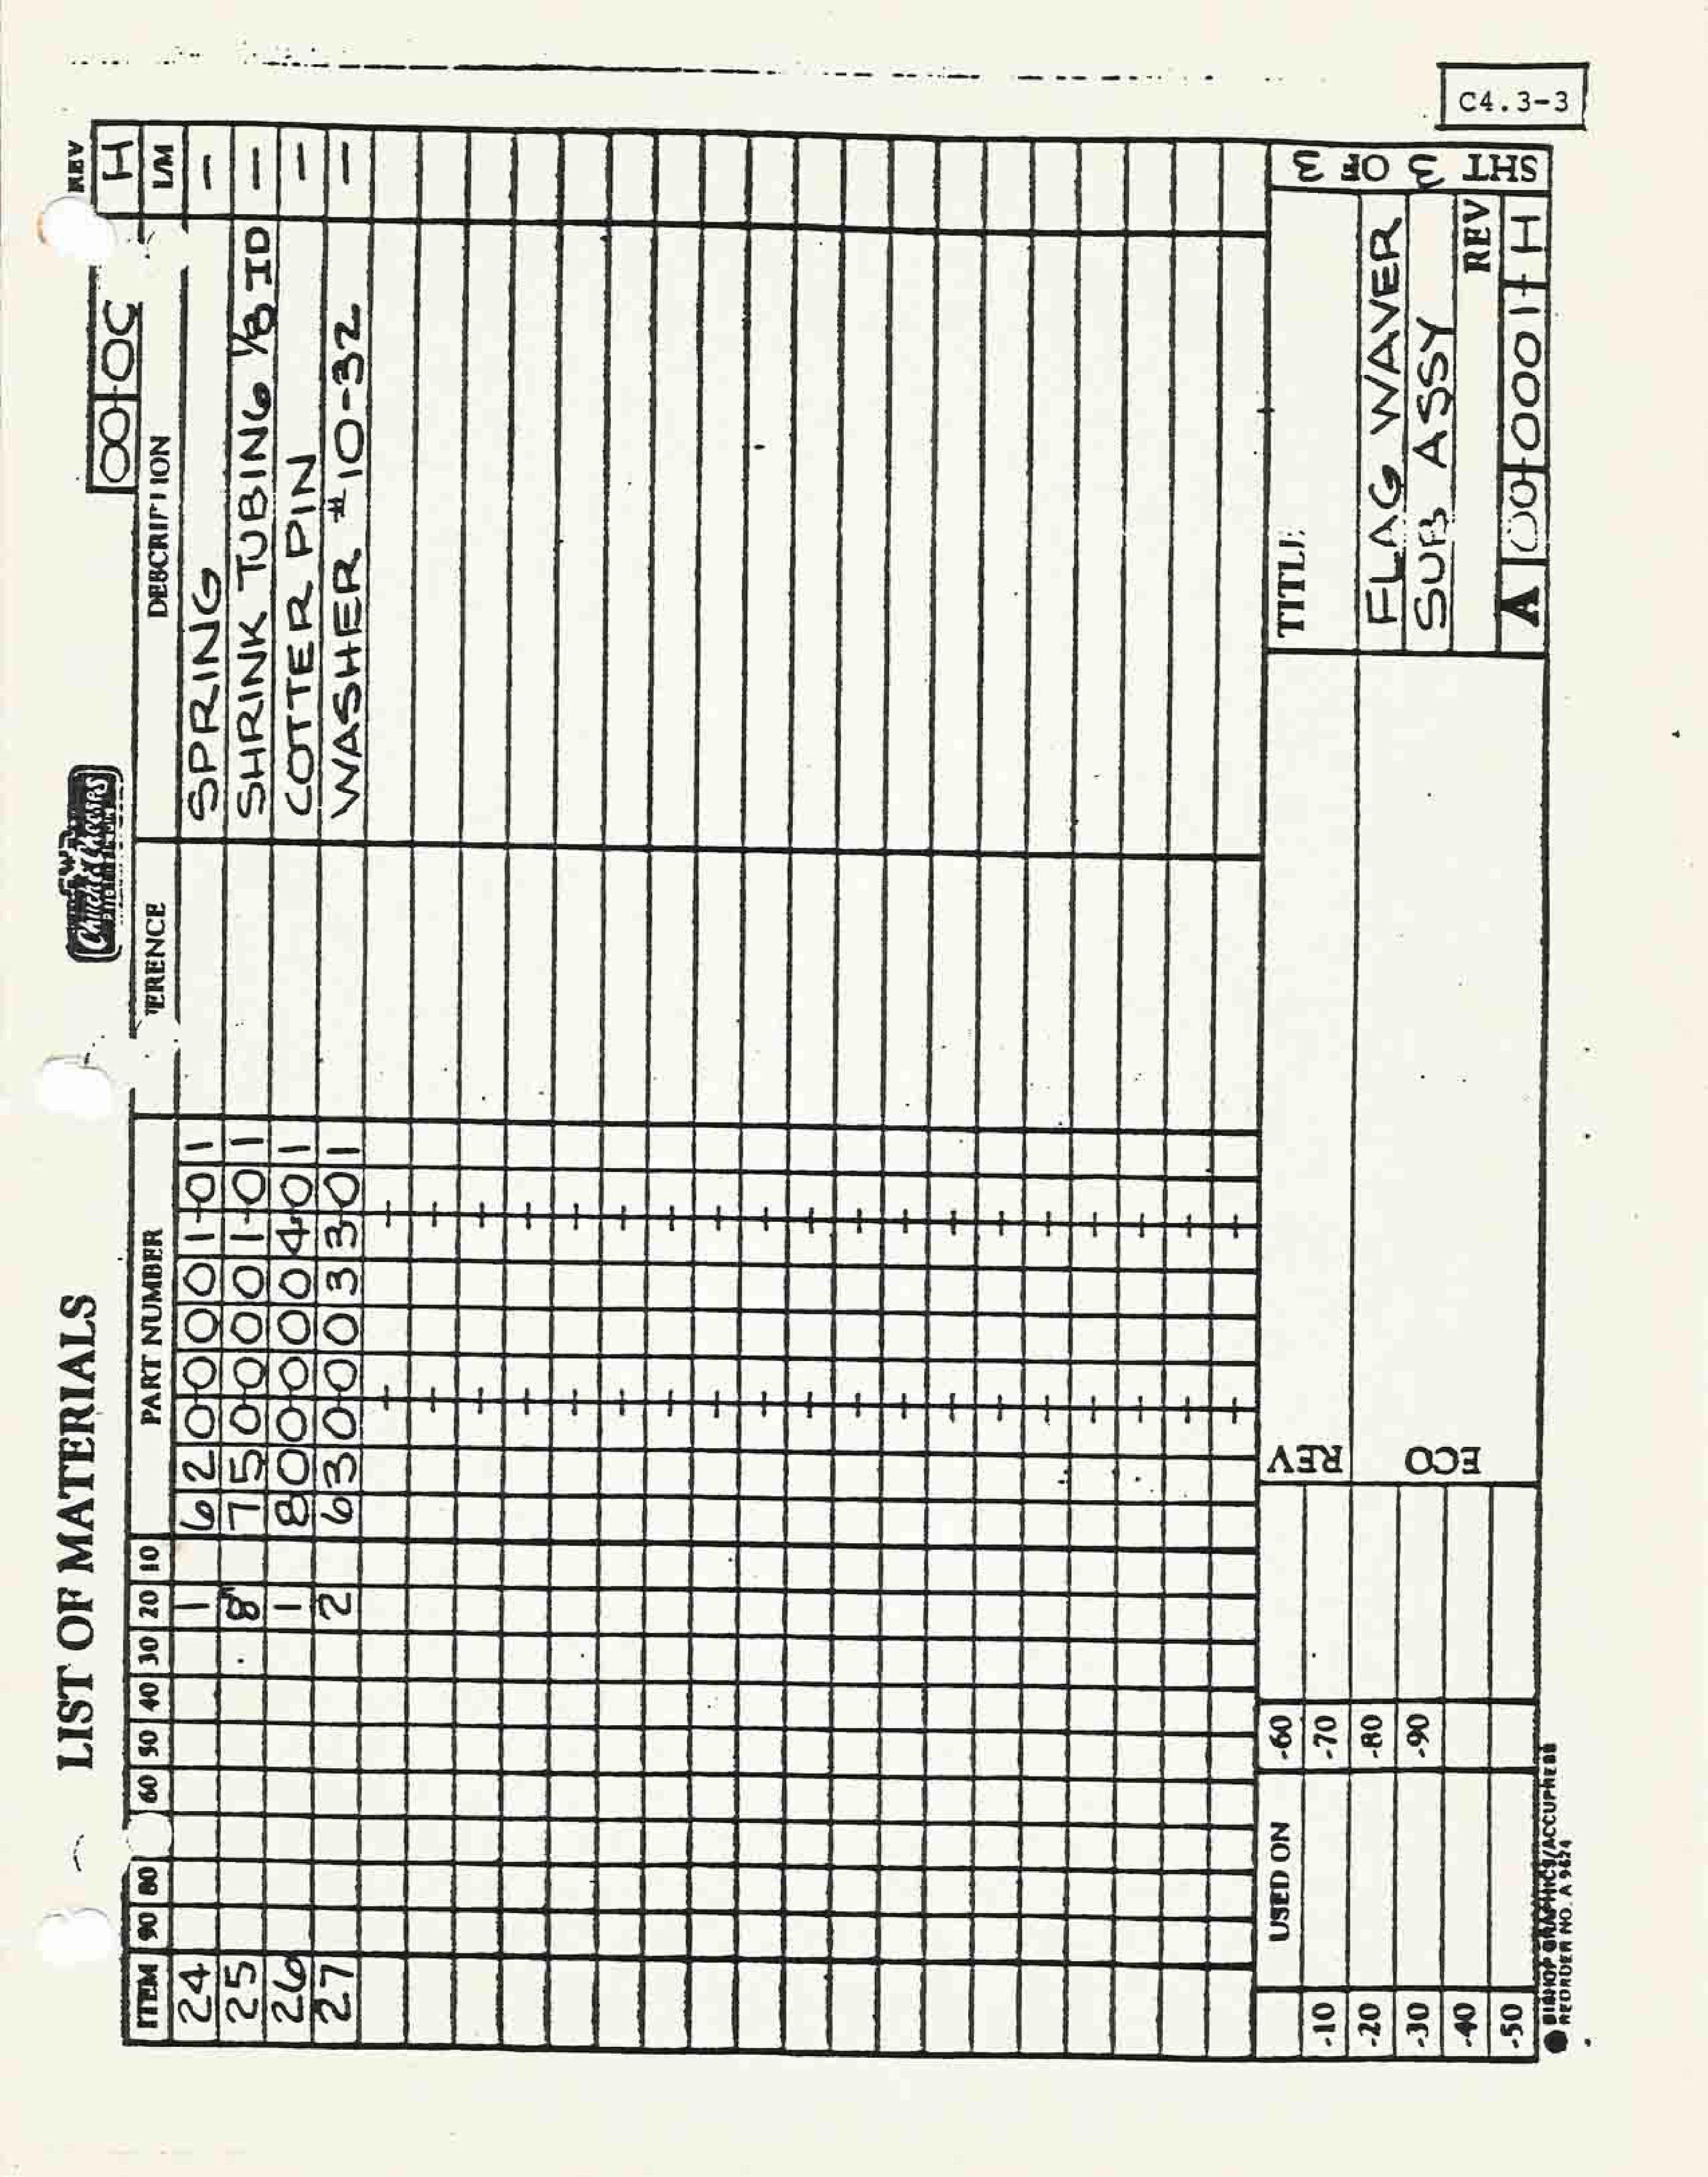 C4.3-3
LIST OF MATERIALS
Chuck E. Cheese's
REV
00 0C H
ITEM 90 80 60 50 40 30 20 10 PART NUMBER ERENCE DESCRIPTION L/M
24 1 620-0001-01 SPRING -
25 8" 750-0001-01 SHRINK TUBING 1/8 ID -
26 1 800-0004-01 COTTER PIN -
27 2 630-0033-01 WASHER #10-32 -
USED ON
-10
-20
-30
-40
-50
-60
-70
-80
-90
REV
ECO
TITLE
FLAG WAVER
SUB ASSY
REV
A 00 0001 H
SHT 3 OF 3
BISHOP GRAPHICS/ACCUPRESS
REORDER NO. A 9624